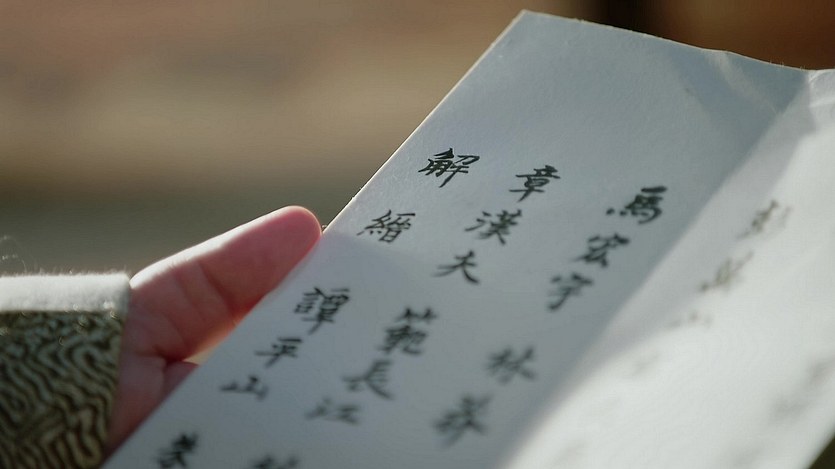 馬宏宇 林
章漢夫 範長江
解縉 譚平山